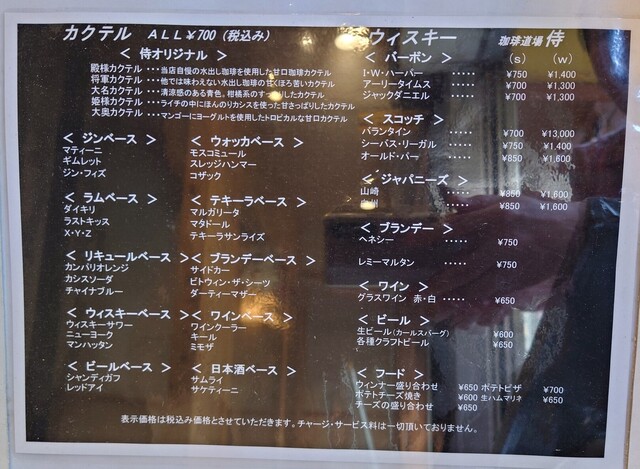 カクテル ALL¥700（税込み）
＜侍オリジナル＞
殿様カクテル・・・当店自慢の水出し珈琲を使用した甘口珈琲カクテル
将軍カクテル・・・他では味わえない水出し珈琲の甘くほろ苦いカクテル
大名カクテル・・・清涼感のある青色。柑橘系のすっきりしたカクテル
姫様カクテル・・・ライチの中にほんのりカシスを使った甘さっぱりしたカクテル
大奥カクテル・・・マンゴーにヨーグルトを使用したトロピカルな甘口カクテル
＜ジンベース＞
マティーニ
ギムレット
ジン・フィズ
＜ウォッカベース＞
モスコミュール
スレッジハンマー
コザック
＜ラムベース＞
ダイキリ
ラストキッス
X・Y・Z
＜テキーラベース＞
マルガリータ
マタドール
テキーラサンライズ
＜リキュールベース＞
カンパリオレンジ
カシスソーダ
チャイナブルー
＜ブランデーベース＞
サイドカー
ビトウィン・ザ・シーツ
ダーティーマザー
＜ウィスキーベース＞
ウィスキーサワー
ニューヨーク
マンハッタン
＜ワインベース＞
ワインクーラー
キール
ミモザ
＜ビールベース＞
シャンディガフ
レッドアイ
＜日本酒ベース＞
サムライ
サケティーニ
ウィスキー 珈琲道場 侍
＜バーボン＞ （s） （w）
I・W・ハーパー ・・・・・ ¥750 ¥1,400
アーリータイムス ・・・・・ ¥700 ¥1,300
ジャックダニエル ・・・・・ ¥700 ¥1,300
＜スコッチ＞
バランタイン ・・・・・ ¥700 ¥13,000
シーバス・リーガル ・・・・・ ¥750 ¥1,400
オールド・パー ・・・・・ ¥850 ¥1,600
＜ジャパニーズ＞
山崎 ・・・・・ ¥850 ¥1,600
・・・・・ ¥850 ¥1,600
＜ブランデー＞
ヘネシー ・・・・・ ¥750
レミーマルタン ・・・・・ ¥750
＜ワイン＞
グラスワイン 赤・白 ・・・・・ ¥650
＜ビール＞
生ビール（カールスバーグ） ¥600
各種クラフトビール ¥650
＜フード＞
ウィンナー盛り合わせ ¥650 ポテトピザ ¥700
ポテトチーズ焼き ¥600 生ハムマリネ ¥700
チーズの盛り合わせ ¥650
表示価格は税込み価格とさせていただきます。チャージ・サービス料は一切頂いておりません。